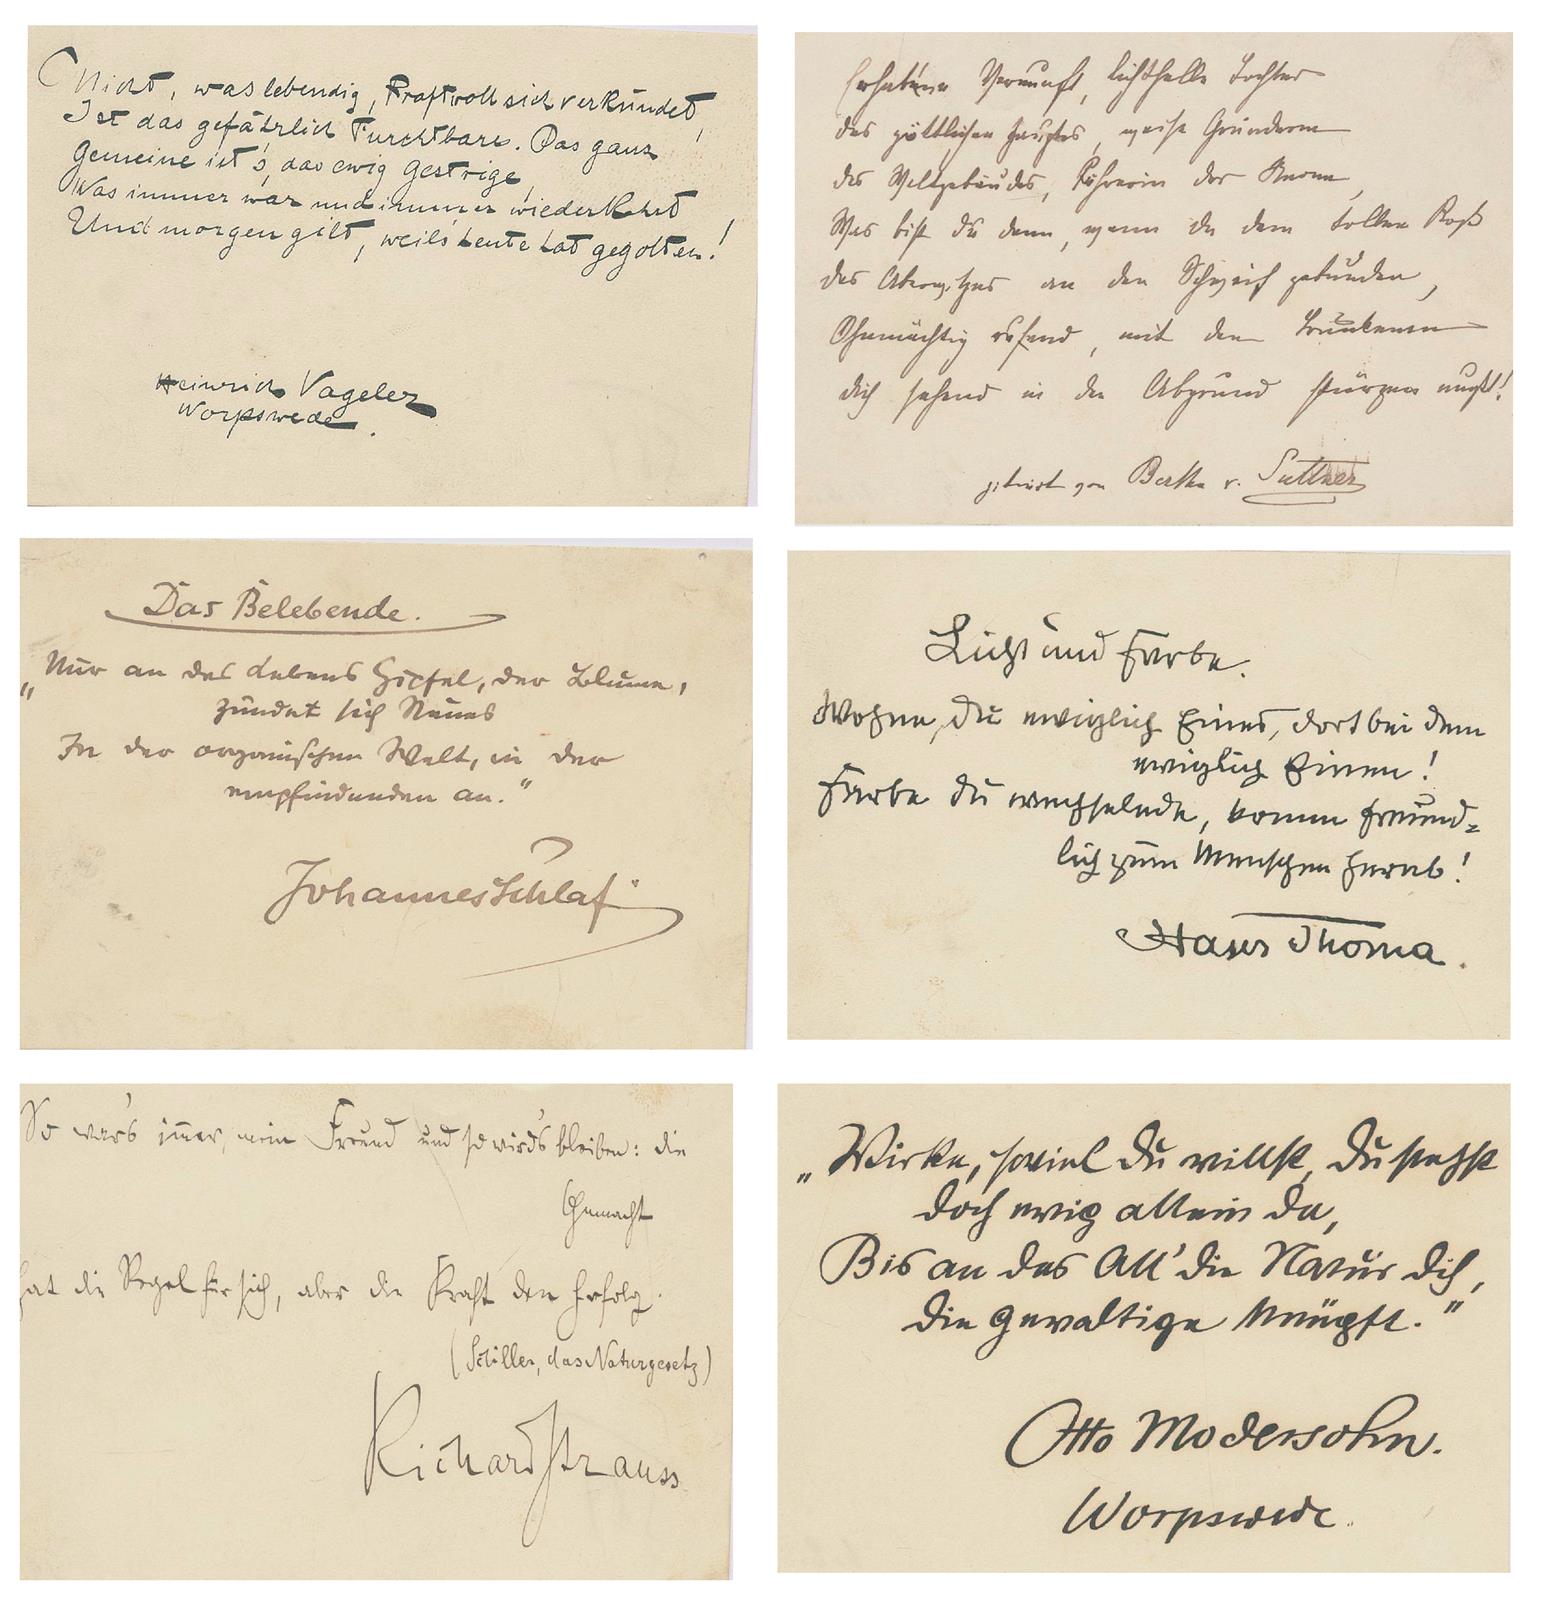 Nicht, was lebendig, kraftvoll sich verkündet,
Ist das gefährlich Furchtbare. Das ganz
Gemeine ist's, das ewig Gestrige,
Was immer war und immer wiederkehrt
Und morgen gilt, weil's heute hat gegolten!
Heinrich Vogeler
Worpswede.
Erhabene Vernunft, lichthelle Tochter
des göttlichen Hauptes, weise Gründerin
des Weltgebäudes, Führerin der Sterne,
Was bist du denn, wenn du dem tollen Roß
des Aberwitzes an den Schweif gebunden,
Ohnmächtig rufend, mit dem Trunkenen
dich sehend in den Abgrund stürzen mußt!
zitiert von Bertha v. Suttner
Das Belebende.
„Nur an des Lebens Gipfel, der Blume,
zündet sich Neues
In der organischen Welt, in der
empfindenden an."
Johannes Schlaf.
Licht und Farbe.
Wohne, du ewiglich Eines, dort bei dem
ewiglich Einen!
Farbe du wechselnde, komm freund=
lich zum Menschen herab!
Hans Thoma.
So war's immer, mein Freund und so wird's bleiben: die
Ohnmacht
hat die Regel für sich, aber die Kraft den Erfolg.
(Schiller, das Naturgesetz)
Richard Strauss
„Wirke, soviel du willst, du stehst
doch ewig allein da,
Bis an das All' die Natur dich,
die gewaltige knüpft."
Otto Modersohn.
Worpswede.